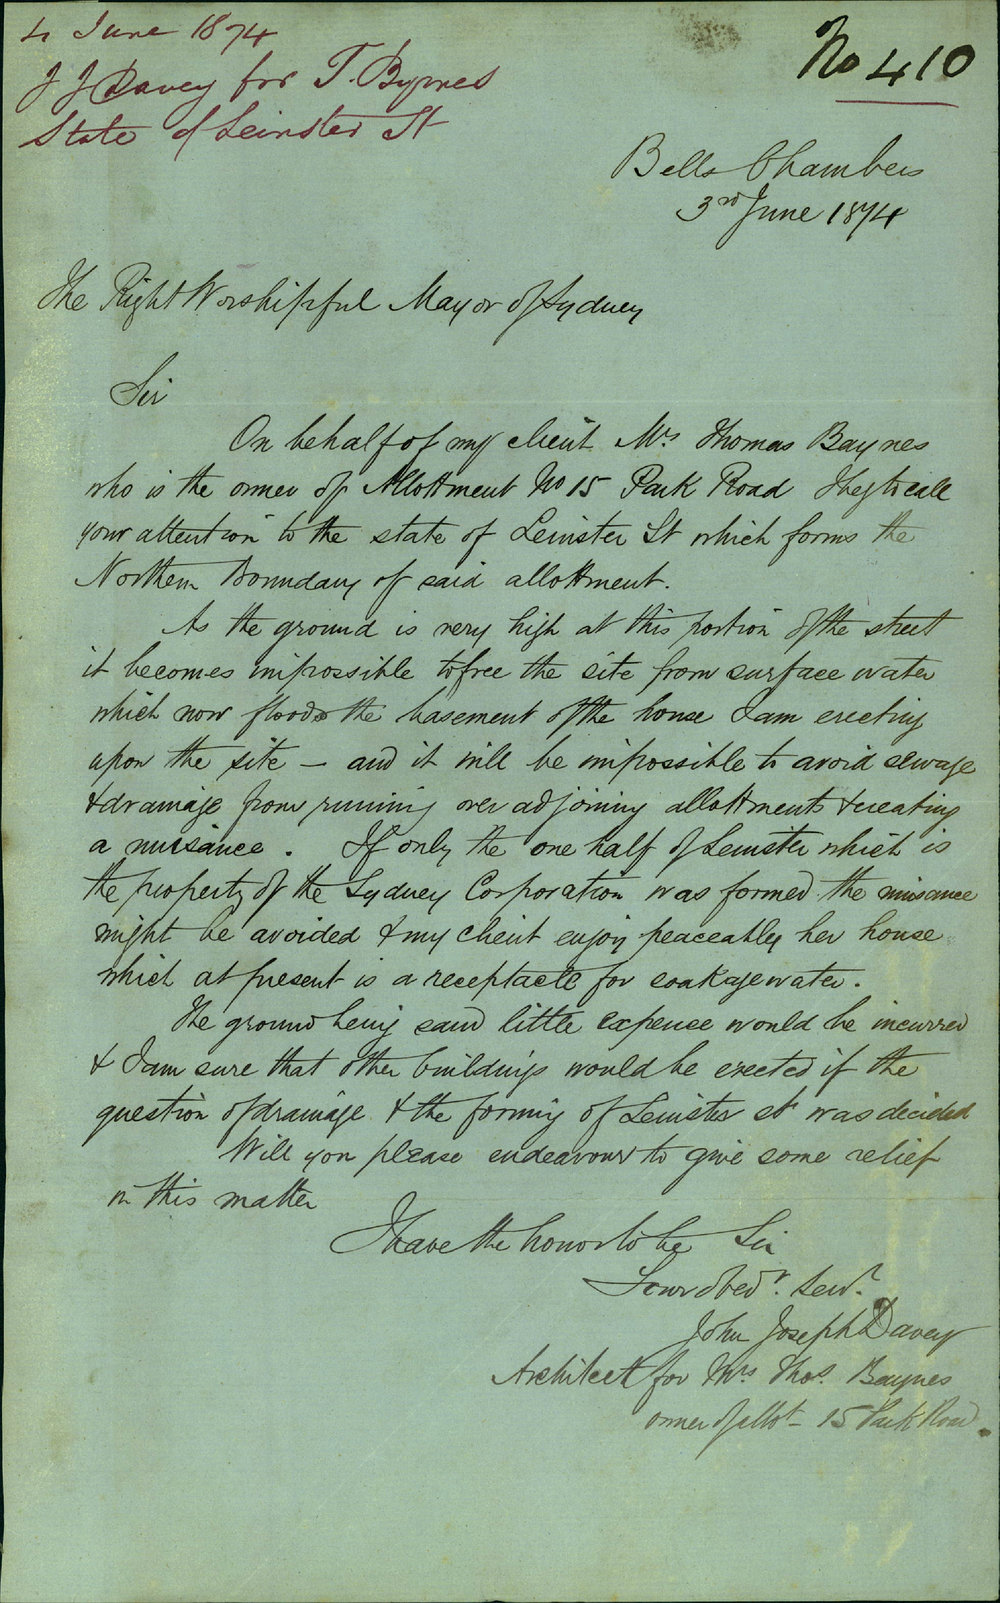 4 June 1874
J J Davey for T. Byrnes
State of Leinster St
No 410
Bells Chambers
3rd June 1874
The Right Worshipful Mayor of Sydney
Sir
On behalf of my client Mrs Thomas Baynes
who is the owner of Allottment No 15 Park Road I beg to call
your attention to the state of Leinster St which forms the
Northern Boundary of said allottment.
As the ground is very high at this portion of the street
it becomes impossible to free the site from surface water
which now floods the basement of the house I am erecting
upon the site – and it will be impossible to avoid sewage
& drainage from running over adjoining allottments & creating
a nuisance. If only the one half of Leinster which is
the property of the Sydney Corporation was formed the nuisance
might be avoided & my client enjoy peaceably her house
which at present is a receptacle for soakage water.
The ground being sand little expense would be incurred
& I am sure that other buildings would be erected if the
question of drainage & the forming of Leinster St was decided
Will you please endeavour to give some relief
in this matter
I have the honor to be Sir
Your obedt. Servt.
John Joseph Davey
Architect for Mrs Thos. Baynes
owner of allot – 15 Park Road.